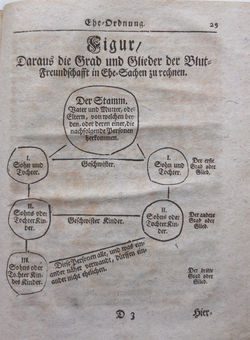 Ehe-Ordnung. 29
Figur/
Daraus die Grad und Glieder der Blut-
Freundschafft in Ehe-Sachen zu rechnen.
Der Stamm.
Vater und Mutter, oder
Eltern, von welchen bey-
den, oder deren einer, die
nachfolgende Personen
herkommen.
Geschwister.
I.
Sohn und
Tochter.
I.
Sohn und
Tochter.
Der erste
Grad oder
Glied.
II.
Sohns oder
Tochter Kin-
der.
Geschwister Kinder.
II.
Sohns oder
Tochter Kin-
der.
Der andere
Grad oder
Glied.
III.
Sohns oder
Tochter Kin-
des Kinder.
Diese Personen alle, und was ein-
ander näher verwandt, dürffen ein-
ander nicht ehelichen.
Der dritte
Grad oder
Glied.
D 3
Hier-